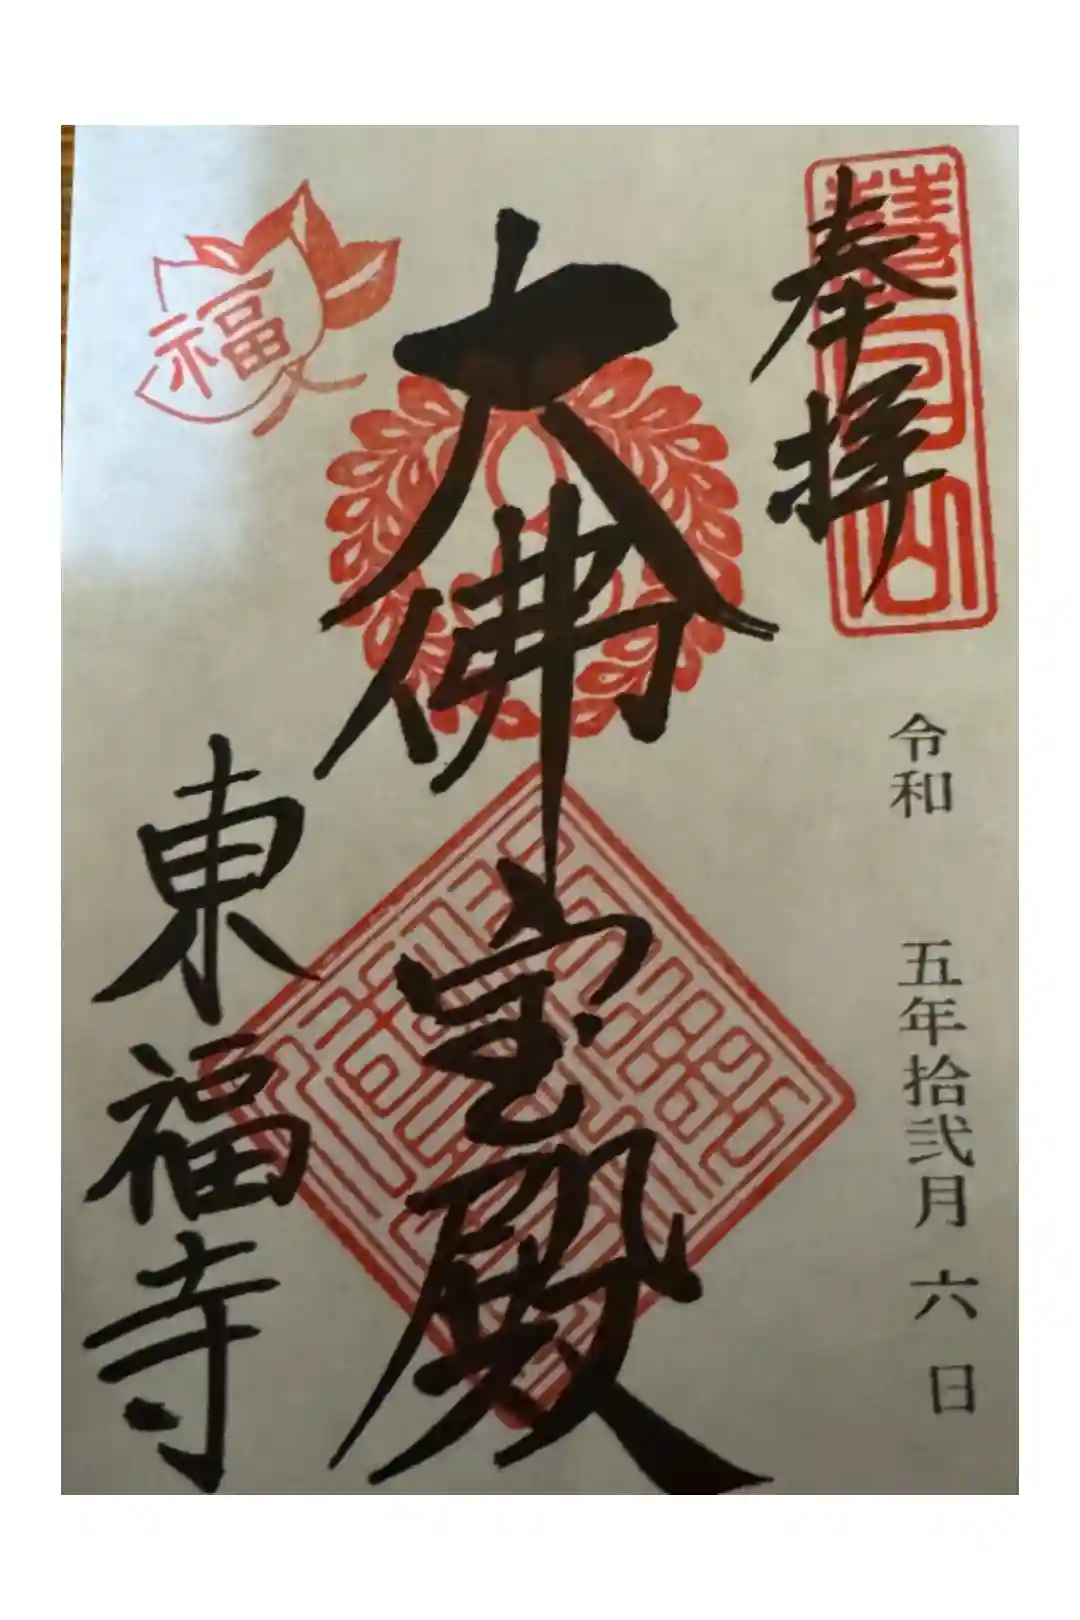 奉拝
慧日山
令和 五年拾弐月 六 日
大佛宝殿
東福寺
福